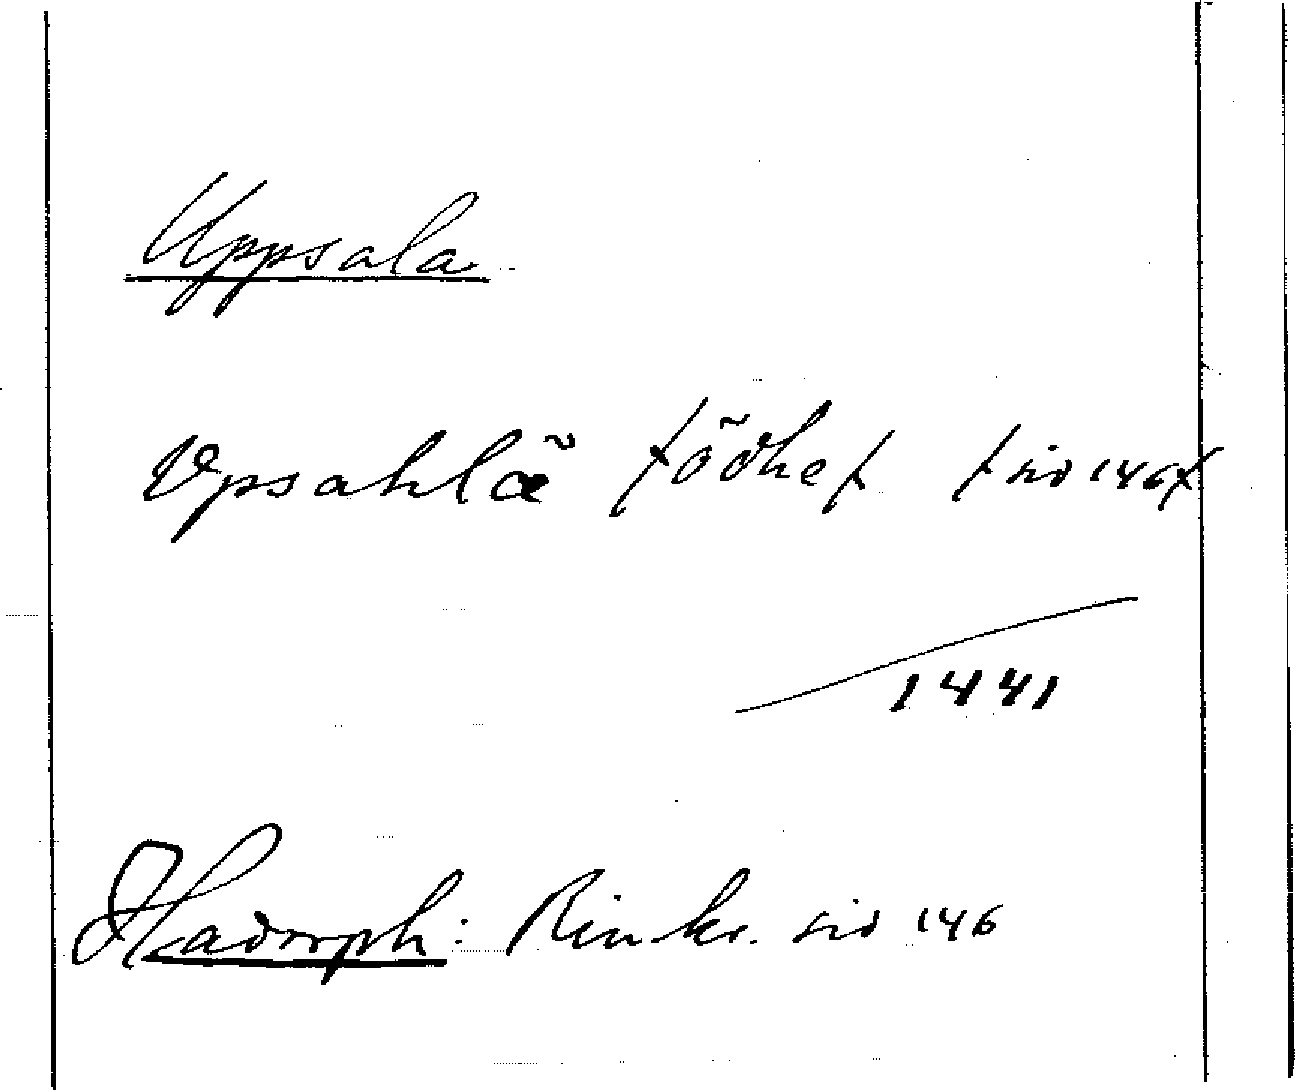 Uppsala
Vpsahlæ̃ /õdhe/ /sid 146/
1441
Hadorph: Rimkr. sid 146